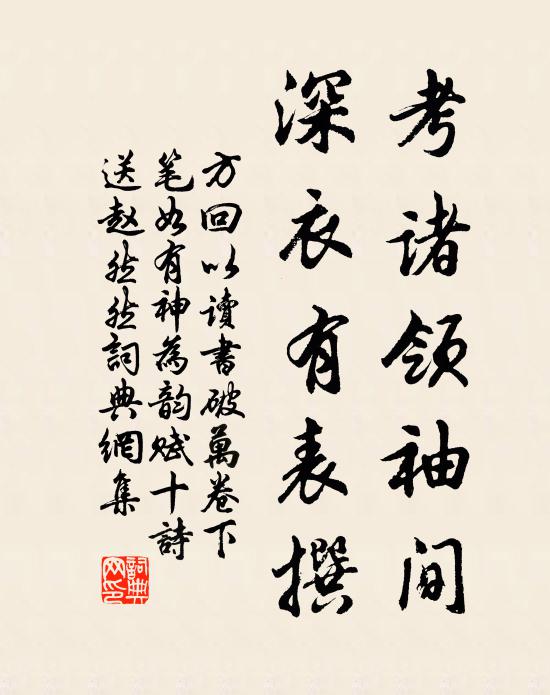 考诸领袖间
深衣有表撰
方回以讀書破萬卷下
笔如有神為韵赋十詩
送赵然然詞典網集
詞典网印